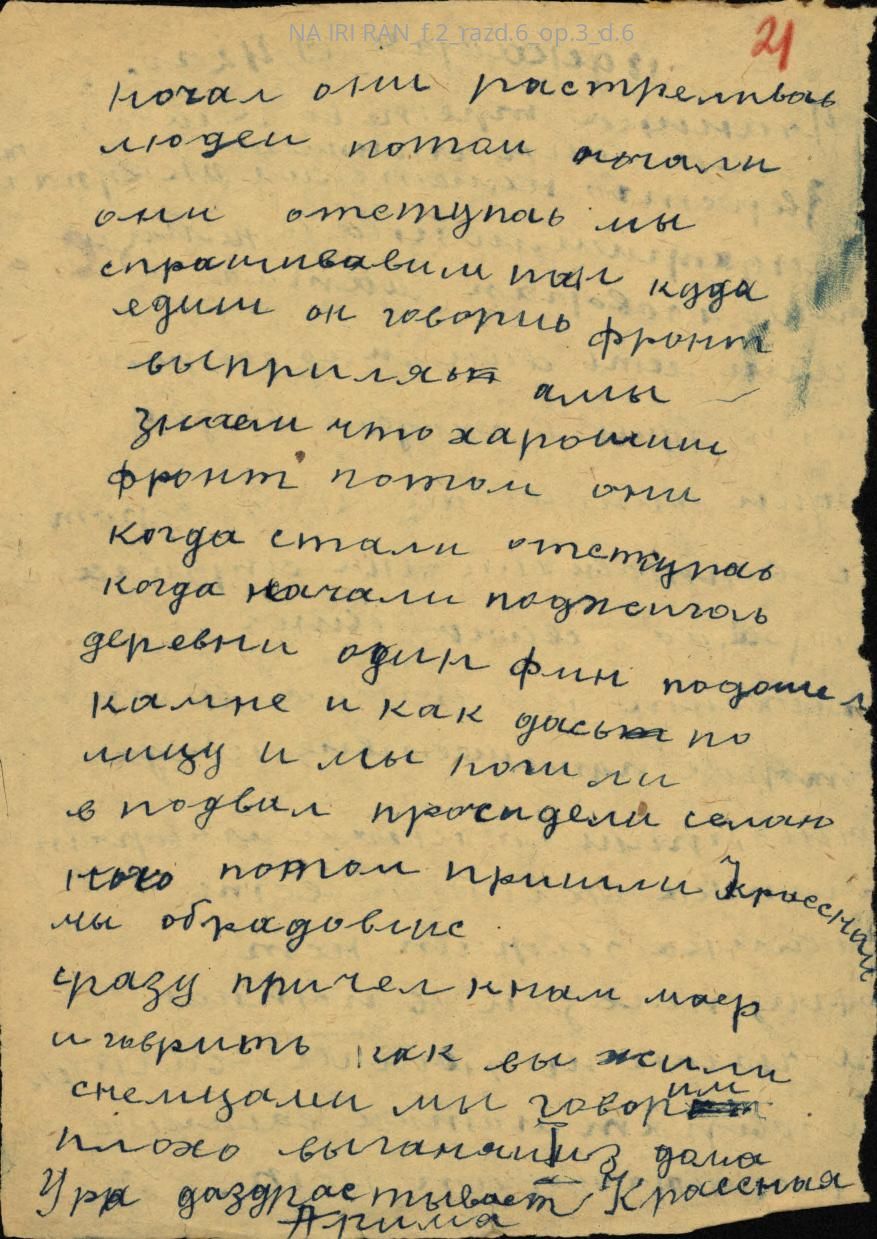 NA IRI RAN_f.2_razd.6_op.3_d.6
21
ночал они растреливаь
людеи потом ночали
они отступаь мы
спрашивавим пан куда
едиш он говориь фронт
выприлял амы
знаем что харошии
фронт потом они
когда стали отступаь
когда начали поджигаь
деревни один фин подошел
камне и как дась по
лицу и мы пошли
в подвал просидели селаю
ночо потом пришли Красснаи
мы обрадовлис
сразу причел кнам маер
и говрить как вы жили
снемцами мы говорим
плохо выганялииз дома
Ура даздраствывает Крассная
Арима